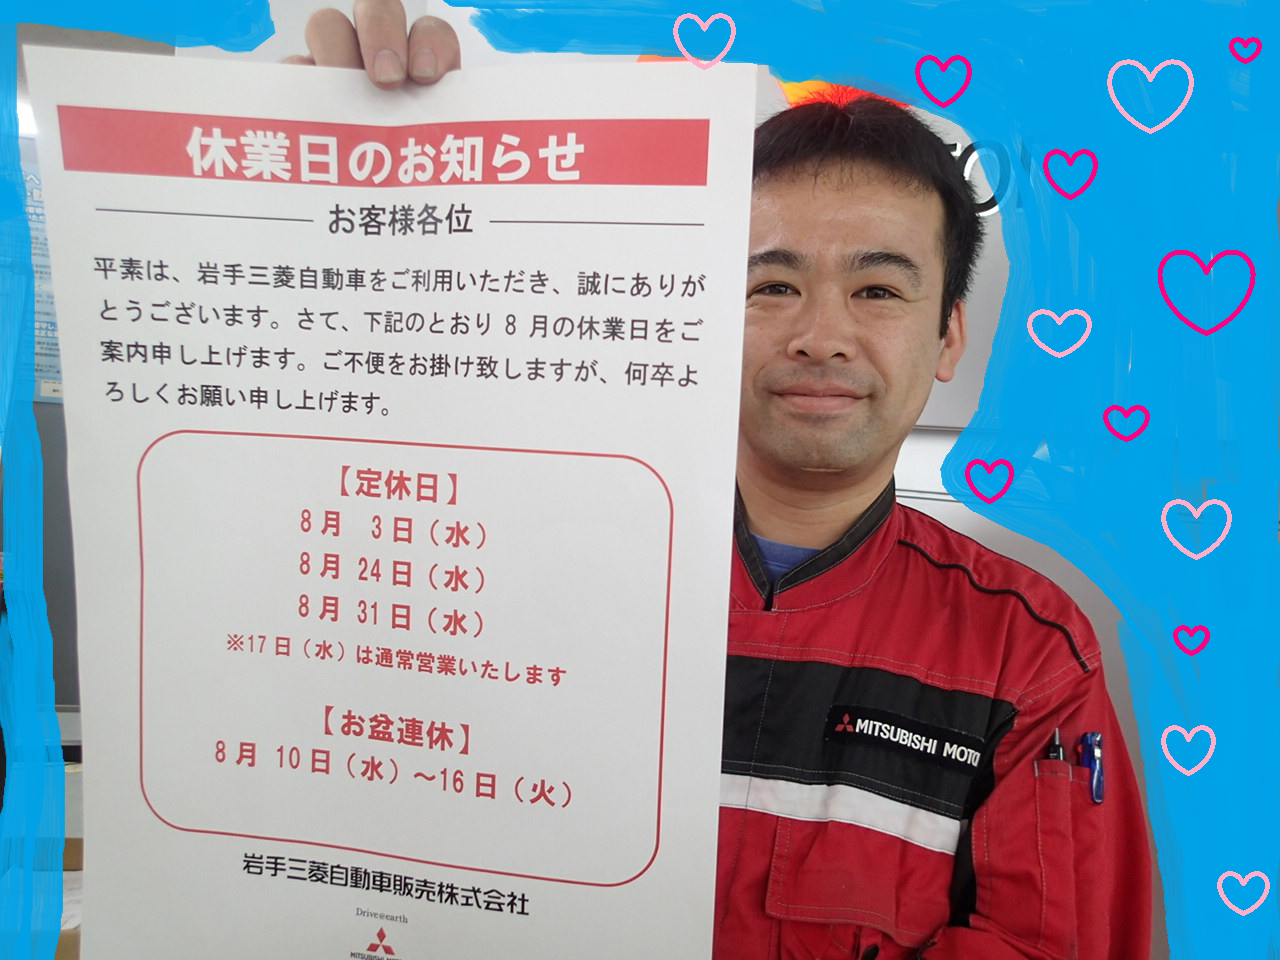 休業日のお知らせ
お客様各位
平素は、岩手三菱自動車をご利用いただき、誠にありが
とうございます。さて、下記のとおり 8 月の休業日をご
案内申し上げます。ご不便をお掛け致しますが、何卒よ
ろしくお願い申し上げます。
【定休日】
8月 3日（水）
8月 24日（水）
8月 31日（水）
※17日（水）は通常営業いたします
【お盆連休】
8月 10日（水）～16日（火）
岩手三菱自動車販売株式会社
Drive@earth
MITSUBISHI MOTO